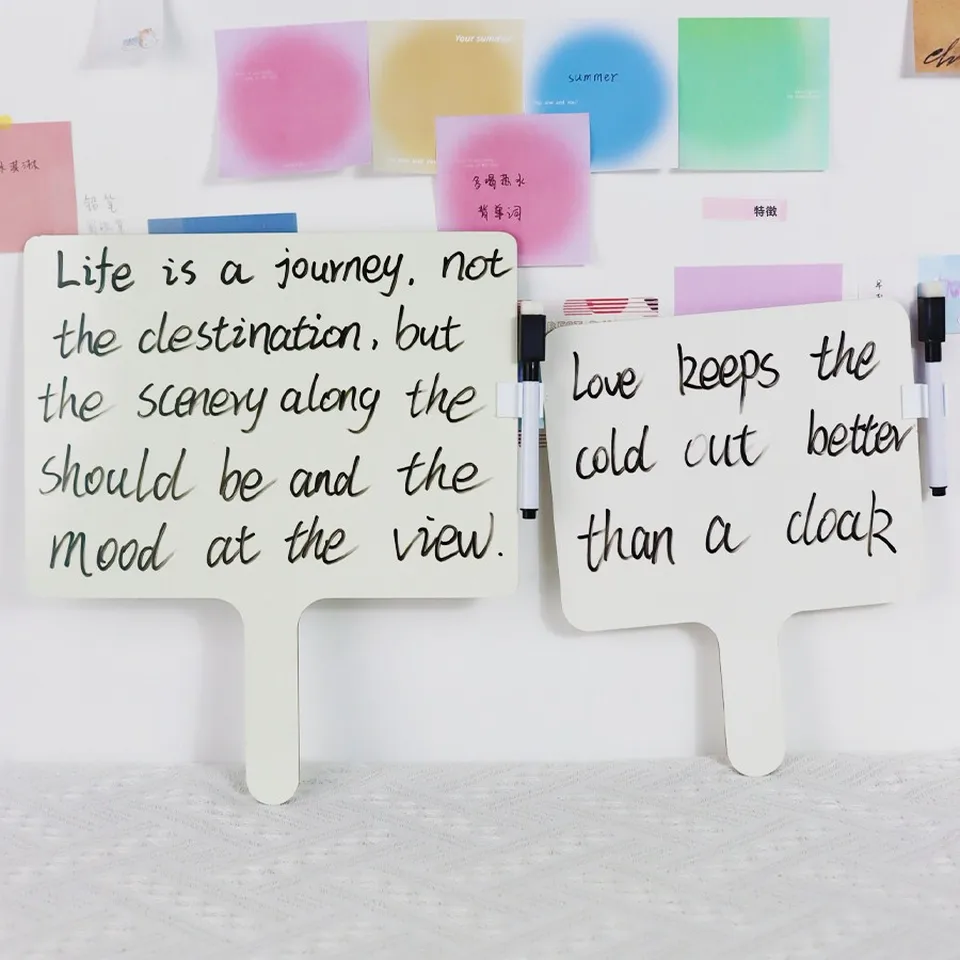 Your summer
summer
多喝热水
背单词
铅笔
特徵
Life is a journey, not
the destination, but
the scenery along the
should be and the
mood at the view.
Love keeps the
cold out better
than a cloak